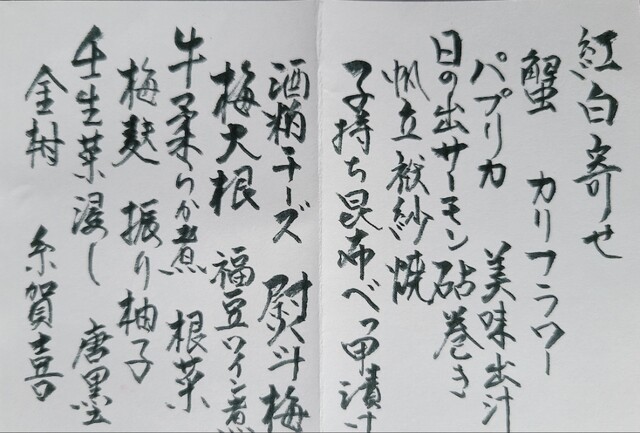 紅白寄せ
蟹 カリフラワー
パプリカ 美味出汁
日の出サーモン砧巻き
帆立袱紗焼
子持ち昆布べっ甲漬け
酒粕チーズ 熨斗梅
梅大根 福豆ワイン煮
牛柔らか煮 根菜
梅麩 振り柚子
壬生菜浸し 唐墨
金柑 糸賀喜